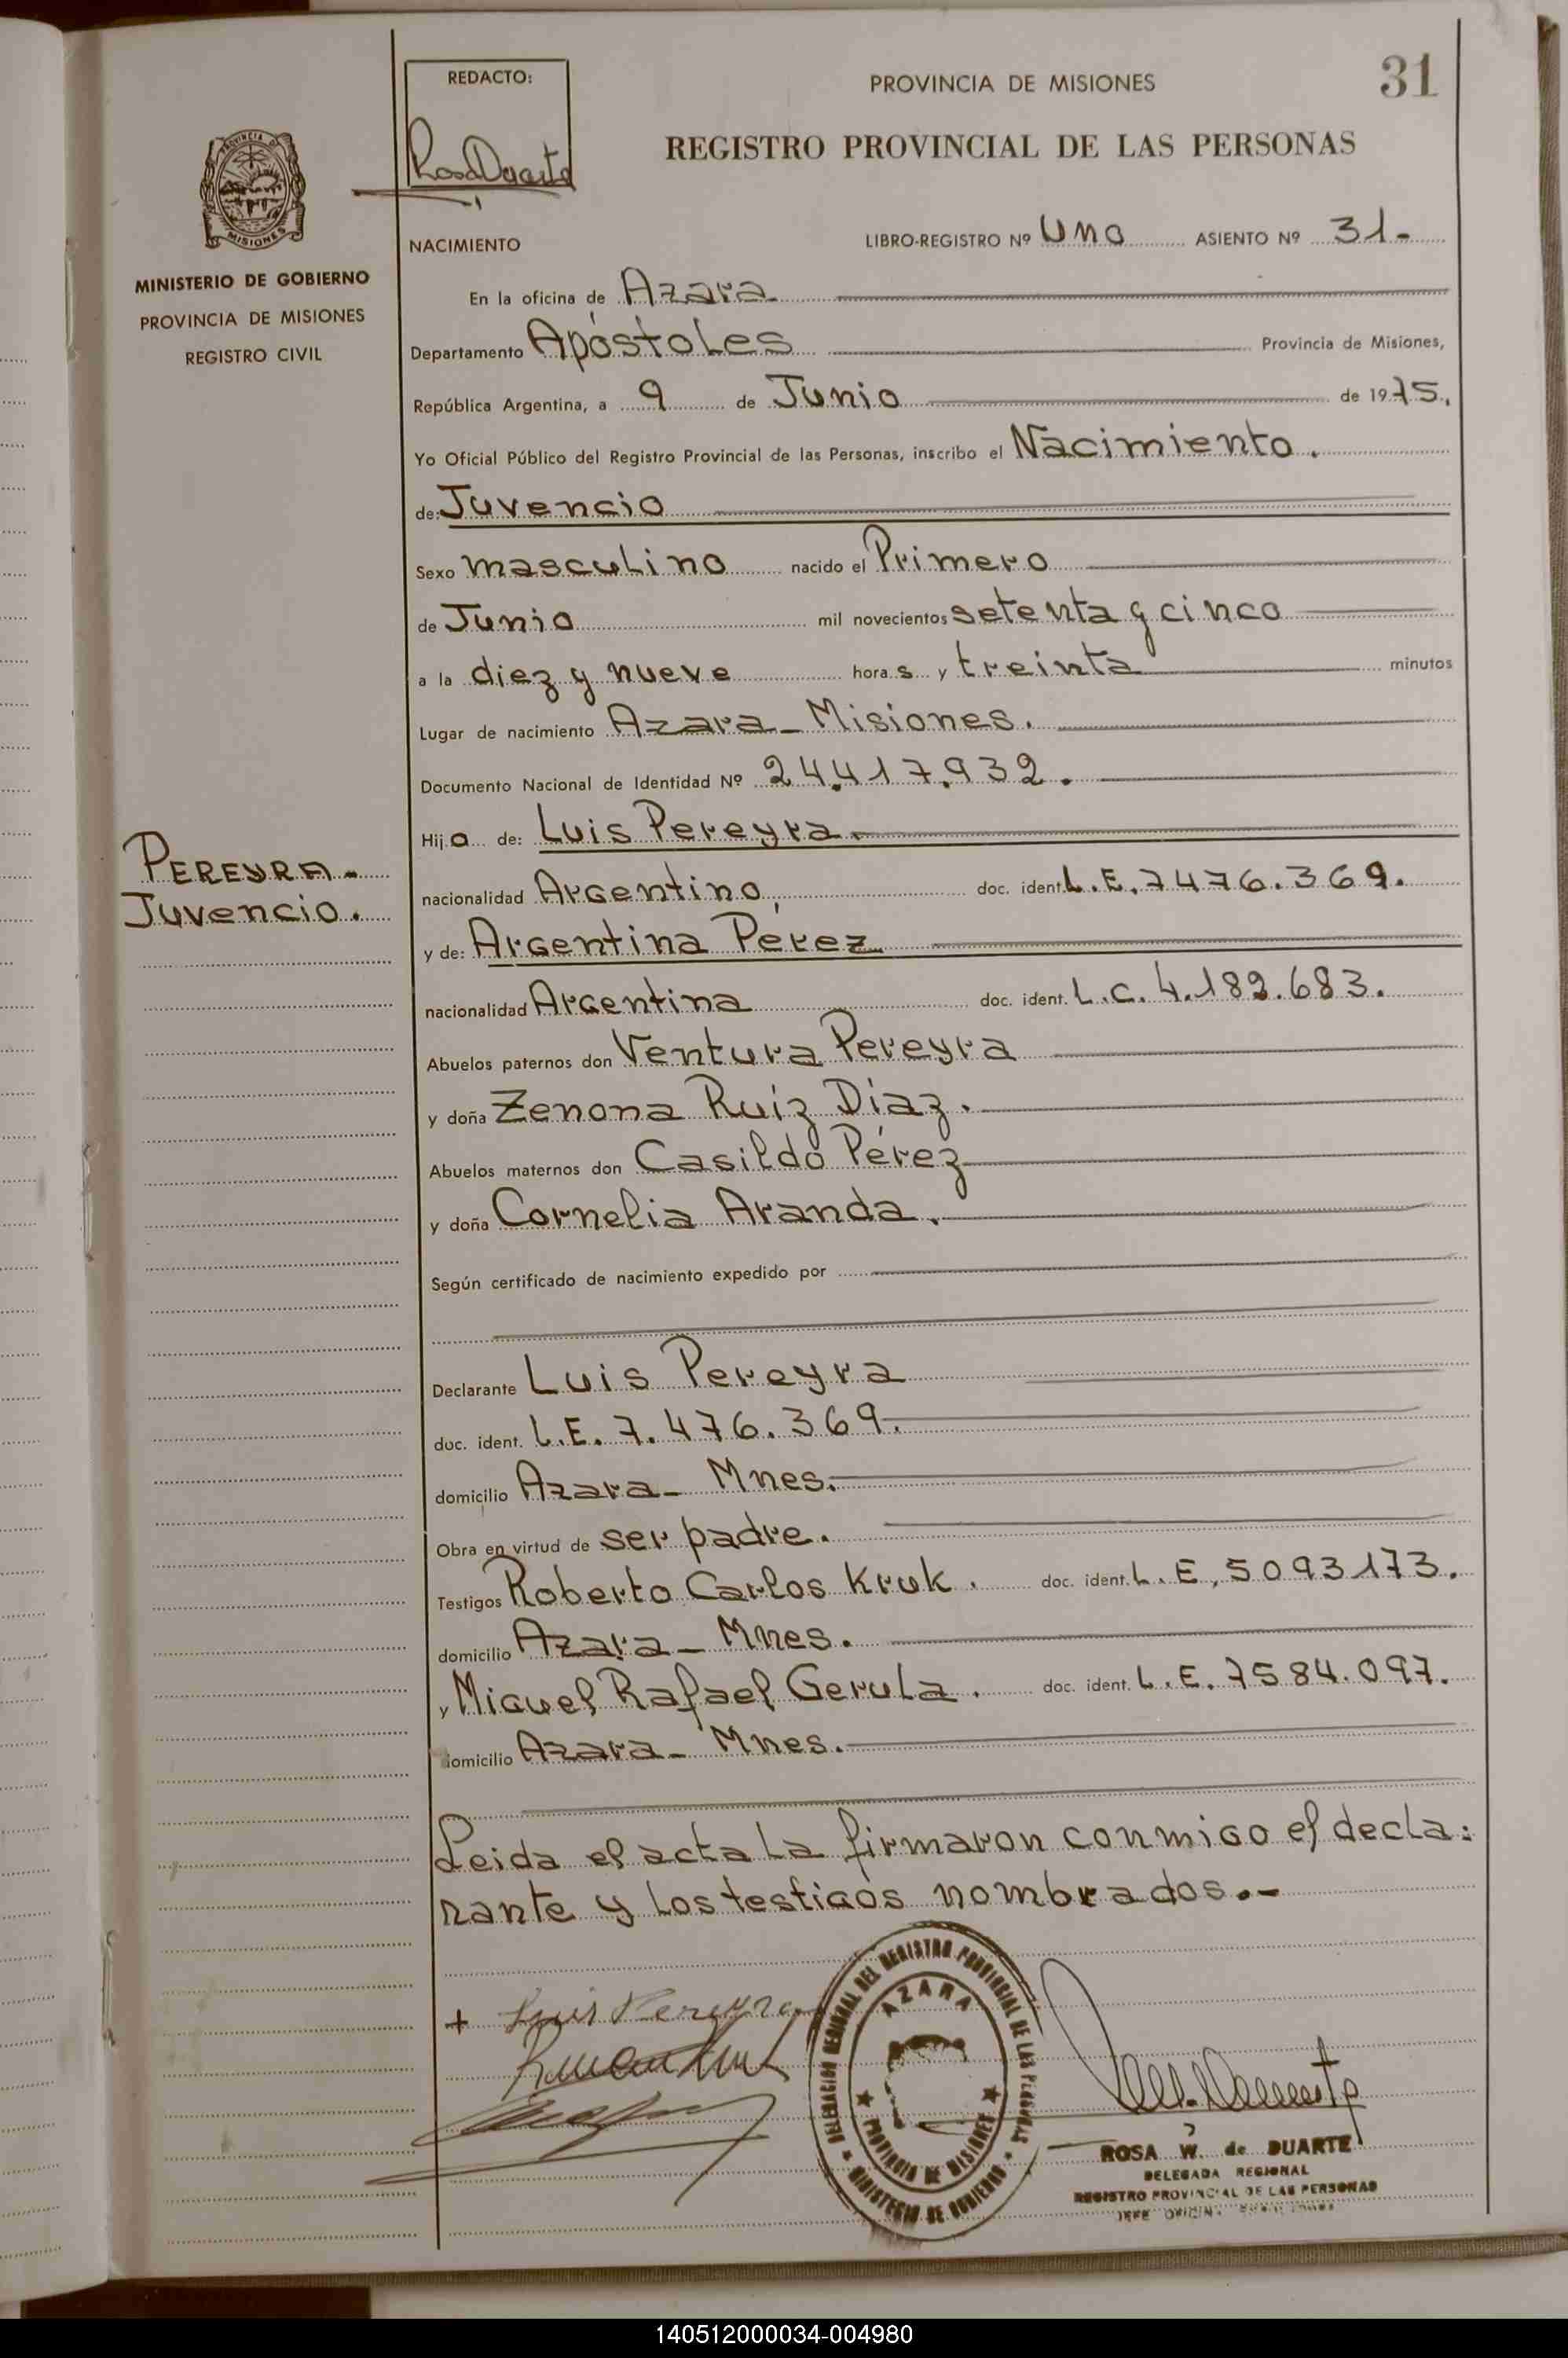 31
REDACTO:
Rosa Duarte
PROVINCIA DE MISIONES
REGISTRO PROVINCIAL DE LAS PERSONAS
PROVINCIA DE
MISIONES
MINISTERIO DE GOBIERNO
PROVINCIA DE MISIONES
REGISTRO CIVIL
NACIMIENTO
LIBRO-REGISTRO Nº Uno ASIENTO Nº 31-
En la oficina de Azara
Departamento Apóstoles Provincia de Misiones,
República Argentina, a 9 de Junio de 1975,
Yo Oficial Público del Registro Provincial de las Personas, inscribo el Nacimiento.
de: Juvencio
Sexo masculino nacido el Primero
de Junio mil novecientos setenta y cinco
a la diez y nueve horas y treinta minutos
Lugar de nacimiento Azara - Misiones.
Documento Nacional de Identidad Nº 24.417.932.
Hijo de: Luis Pereyra.
PEREYRA-
Juvencio.
nacionalidad Argentino, doc. ident. L.E. 7476.369.
y de: Argentina Pérez
nacionalidad Argentina doc. ident. L.C. 4.182.683.
Abuelos paternos don Ventura Pereyra
y doña Zenona Ruíz Díaz.
Abuelos maternos don Casildo Pérez
y doña Cornelia Aranda.
Según certificado de nacimiento expedido por
Declarante Luis Pereyra
doc. ident. L.E. 7.476.369.
domicilio Azara - Mnes.
Obra en virtud de ser padre.
Testigos Roberto Carlos Kruk. doc. ident. L.E. 5093173.
domicilio Azara - Mnes.
y Miguel Rafael Gerula. doc. ident. L.E. 7584.097.
domicilio Azara - Mnes.
Leida el acta la firmaron conmigo el decla:
rante y los testigos nombrados.-
+ Luis Pereyra
DELEGACION REGIONAL DEL REGISTRO PROVINCIAL DE LAS PERSONAS
AZARA
PROVINCIA DE MISIONES
MINISTERIO DE GOBIERNO
ROSA W. de DUARTE
DELEGADA REGIONAL
REGISTRO PROVINCIAL DE LAS PERSONAS
JEFE OFICINA
140512000034-004980